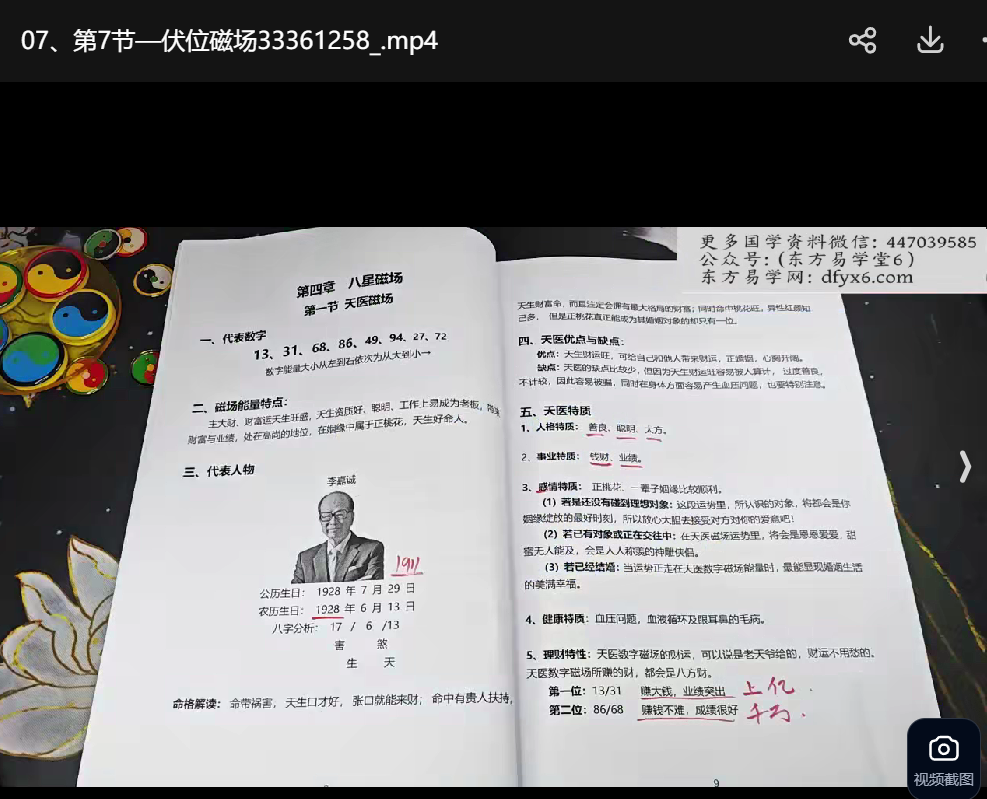 07、第7节—伏位磁场33361258_.mp4
更多国学资料微信: 447039585
公众号: (东方易学堂6)
东方易学网: dfyx6.com
第四章 八星磁场
第一节 天医磁场
一、代表数字
13、31、68、86、49、94、27、72
数字能量大小从左到右依次为从大到小→
二、磁场能量特点:
主大财、财富运天生旺盛, 天生资质好、聪明、工作上易成为老板,
财富与业绩, 处在高尚的地位, 在姻缘中属于正桃花, 天生好命人。
三、代表人物
李嘉诚
1911
公历生日: 1928 年 7 月 29 日
农历生日: 1928 年 6 月 13 日
八字分析: 17 / 6 /13
害 煞
生 天
命格解读: 命带祸害, 天生口才好, 张口就能来财; 命中有贵人扶持,
天生财富命, 而且注定会拥有最大格局的财富; 同时命中桃花旺, 异性红颜知
己多, 但是正桃花真正能成为其婚姻对象的却只有一位。
四、天医优点与缺点:
优点: 天生财运旺, 可给自己和他人带来财运, 正道德, 心胸开阔。
缺点: 天医的缺点比较少, 但因为天生财运旺容易被人算计, 过度善良,
不计较, 因此容易被骗, 同时在身体方面容易产生血压问题, 也要特别注意。
五、天医特质
1、人格特质: 善良、聪明、大方。
2、事业特质: 钱财、业绩。
3、感情特质: 正桃花、一辈子姻缘比较顺利。
(1) 若是还没有碰到理想对象: 这段运势里, 所认识的对象, 将都会是你
姻缘绽放的最好时刻, 所以放心大胆去接受对方对你的爱意吧!
(2) 若已有对象或正在交往中: 在天医磁场运势里, 将会是恩恩爱爱、甜
蜜无人能及, 会是人人称羡的神雕侠侣。
(3) 若已经结婚: 当运势正走在天医数字磁场能量时, 最能显现婚姻生活
的美满幸福。
4、健康特质: 血压问题, 血液循环及眼耳鼻的毛病。
5、理财特性: 天医数字磁场的财运, 可以说是老天爷给的, 财运不用愁的。
天医数字磁场所赚的财, 都会是八方财。
第一位: 13/31 赚大钱, 业绩突出 上亿
第二位: 86/68 赚钱不难, 成绩很好 千万
9
视频截图